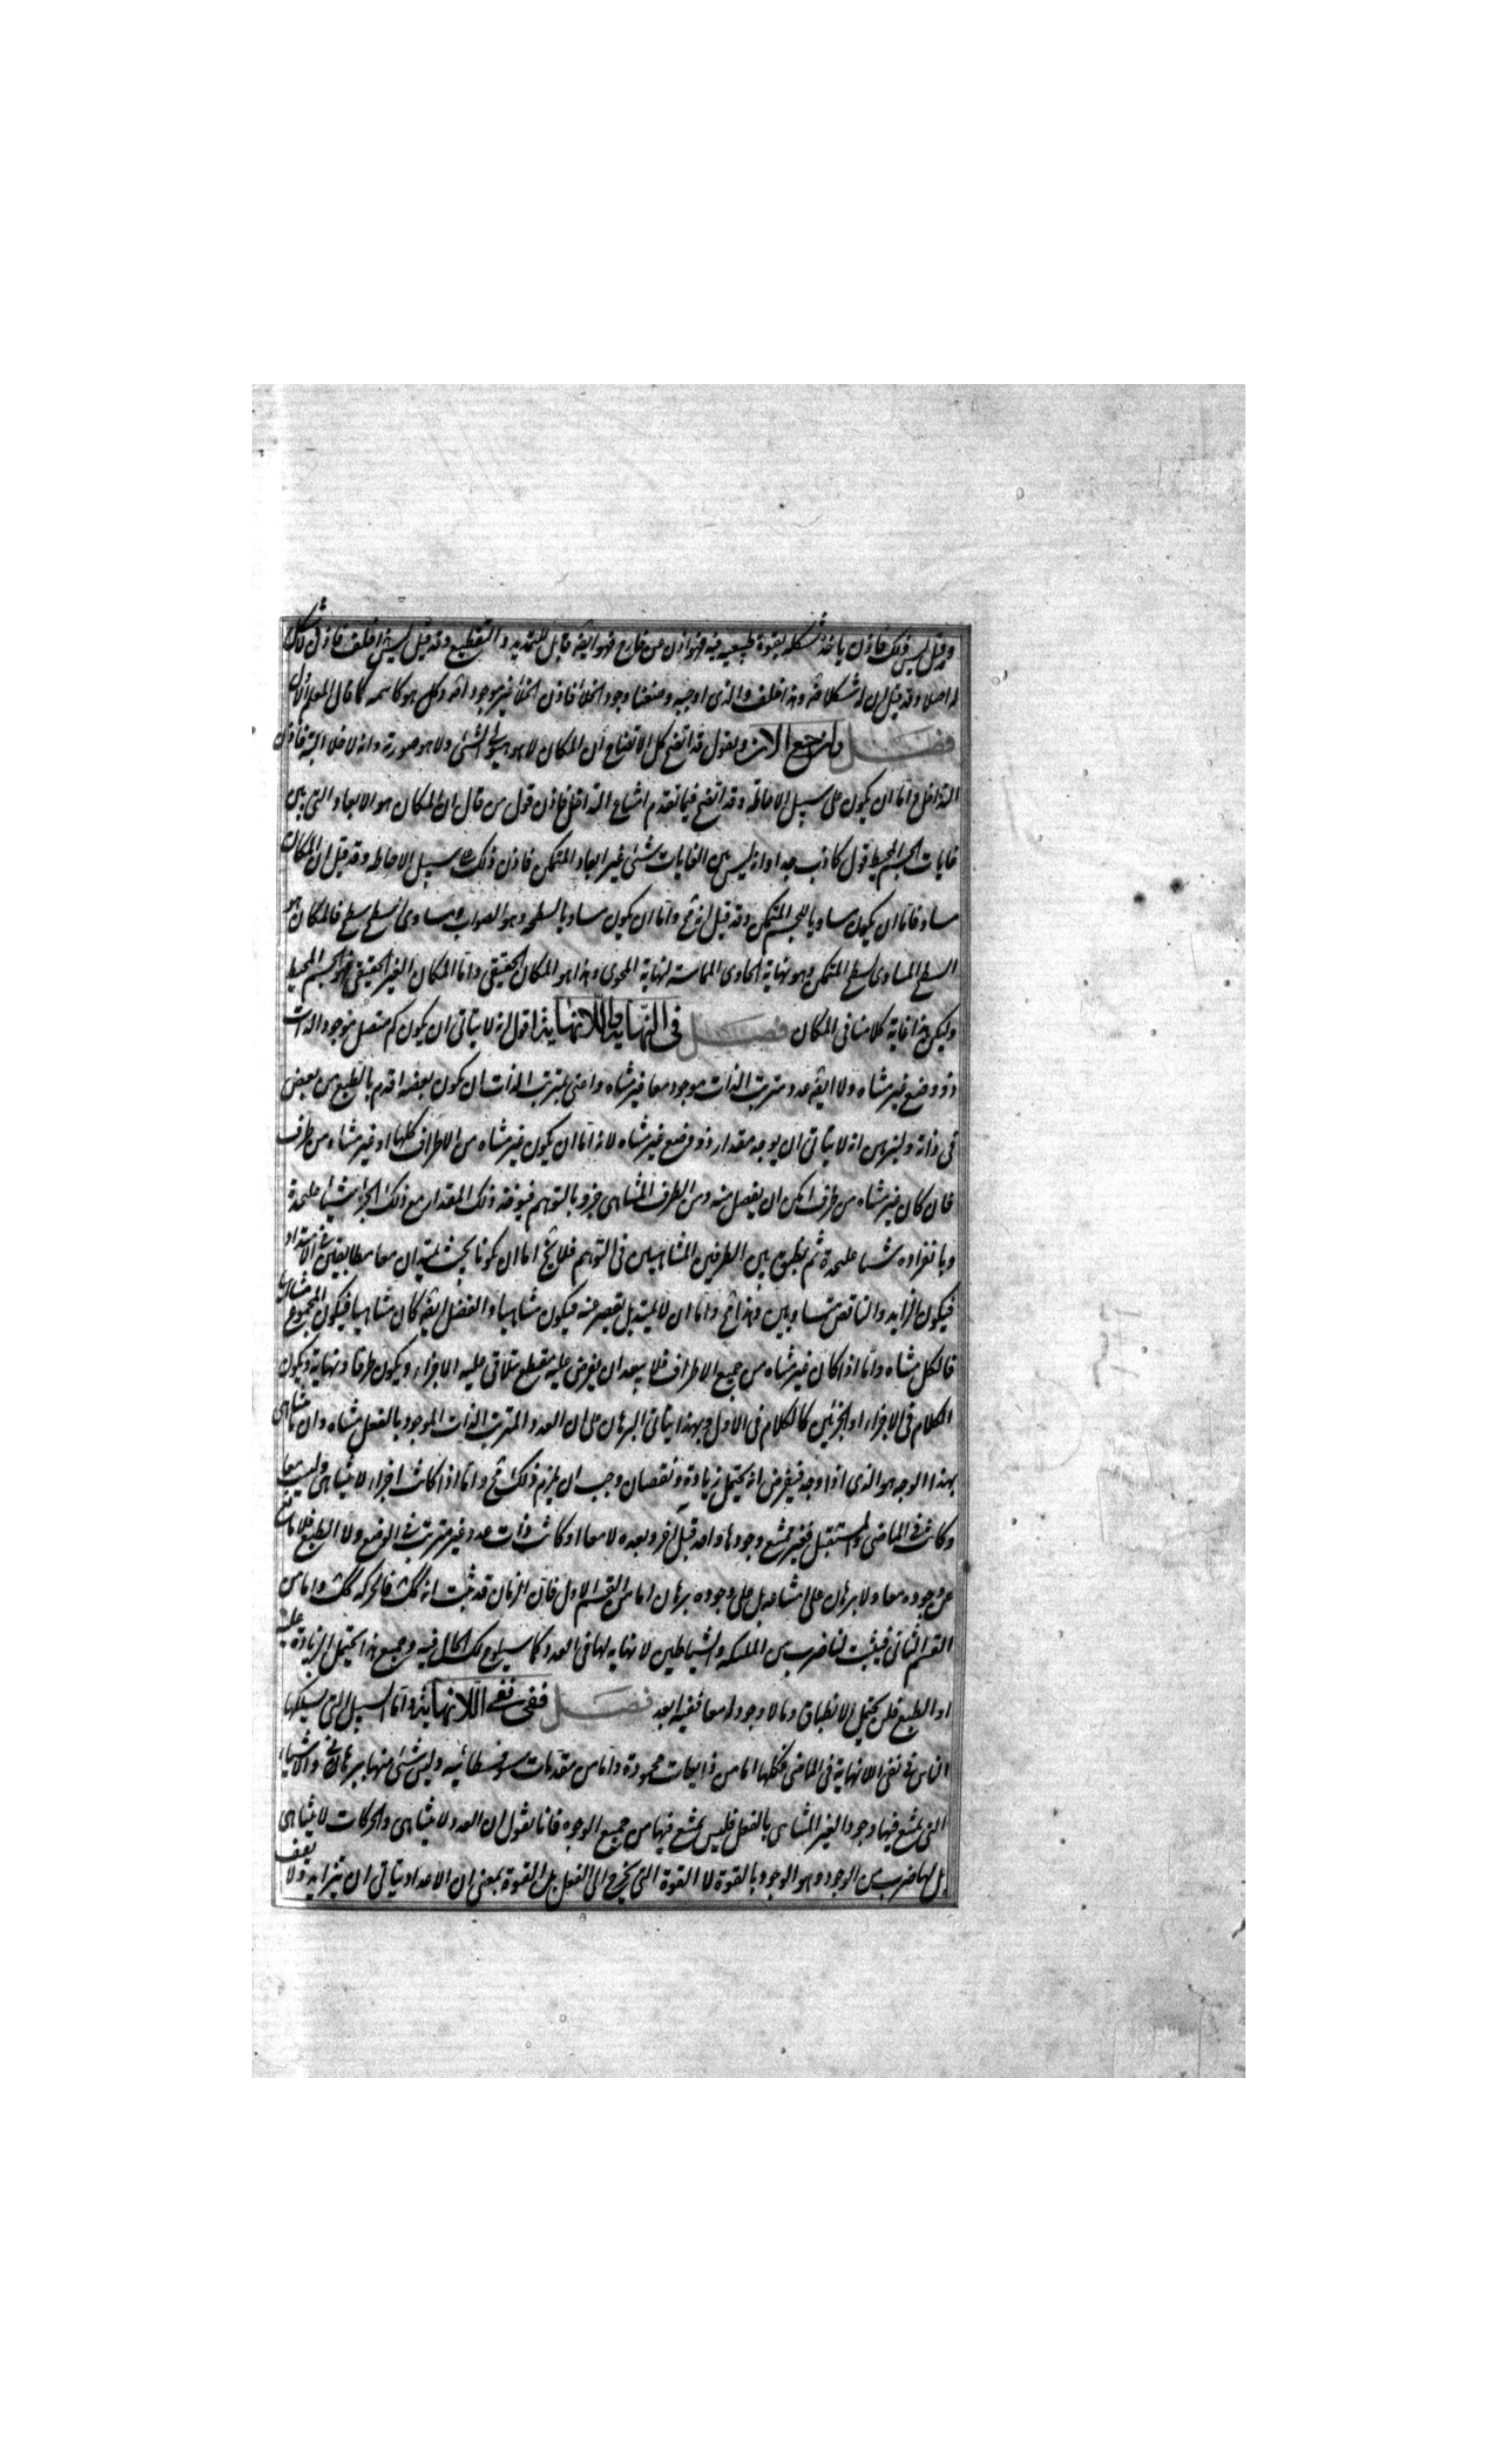 وقيل ليس كك فاذن ياخذ شكله بقوة طبيعية فيه فهو اذن من خارج فهو ايضه قابل للتمديد والتقطيع وقد قيل ليس هف فاذن لا شكل
له اصلا وقد قيل ان له شكلا فه وهذا خلف والذى اوجبه وضعنا وجود الخلأ فاذن الخلأ غير موجود اصه وكل هو كاسمه كما قال المعلم الاول
فصــل ولنرجع الان ونقول قد اتضح كل الاتضاح ان المكان لا هو هيولى الشئ ولا هو صورته وانه لا خلا البتة فاذن
التداخل واما ان يكون على سبيل الاحاطة وقد اتضح فيما تقدم امتناع التداخل فاذن قول من قال ان المكان هو الابعاد التى بين
غايات الجسم المحيط قول كاذب جدا وانه ليس بين الغايات شئ غير ابعاد المتمكن فاذن ذلك على سبيل الاحاطه وقد قيل ان المكان
مساو فاما ان يكون مساويا للجسم المتمكن وقد قيل انه مح واما ان يكون مساويا لسطحه وهو الصواب ومساوى السطح سطح فالمكان هو
السطح المساوى لسطح المتمكن وهو نهاية الحاوى المماسة لنهاية المحوى وهذا هو المكان الحقيقى واما المكان الغير الحقيقى فهو الجسم المحيط
وليكن هذا غاية كلامنا فى المكان فصــل فى النهاية واللانهاية اقول انه لا يتاتى ان يكون كم متصل موجود الذات
ذو وضع غير متناه ولا ايضه عدد مترتب الذات موجود معا غير متناه واعنى بمترتب الذات ان يكون بعضه اقدم بالطبع من بعض
فى ذاته ولنبرهن انه لا يتاتى ان يوجد مقدار ذو وضع غير متناه لانه اما ان يكون غير متناه من الاطراف كلها او غير متناه من طرف
فان كان غير متناه من طرف امكن ان يفصل منه ومن الطرف المتناهى جزو بالتوهم فيوخذ ذلك المقدار مع ذلك الجزء شيئا عليحدة
وبانفراده شيئا عليحدة ثم يطبق بين الطرفين المتناهيين فى التوهم فلا يخ اما ان يكونا بحيث يمتدان معا مطابقين فى الامتداد
فيكون الزايد والناقص متساويين وهذا مح واما ان لا يمتد بل يقصر عنه فيكون متناهيا والفضل ايضه كان متناهيا فيكون المجموع متناهيا
فالكل متناه واما اذا كان غير متناه من جميع الاطراف فلا يبعد ان يفرض عليه مقطع يتلاقى عليه الاجزاء ويكون طرفا ونهاية ويكون
الكلام فى الاجزاء او الجزئين كالكلام فى الاول وبهذا يتاتى البرهان على ان العدد المترتب الذات الموجود بالفعل متناه وان ما يتناهى
بهذا الوجه هو الذى اذا وجد فيفرض انه يحتمل زيادة ونقصان وجب ان يلزم ذلك مح واما اذا كانت اجزاء لا يتناهى وليست معا
وكانت فى الماضى والمستقبل فغير ممتنع وجودها واحد قبل آخر وبعده لا معا او كانت ذات عدد غير مترتب فى الوضع ولا الطبع فلا مانع
عن وجوده معا ولا برهان على امتناعه بل على وجوده برهان اما من القسم الاول فان الزمان قد ثبت انه كك فالحركه كك واما من
القسم الثانى فيثبت لنا ضرب من الملئكه والشياطين لا نهايه لها فى العدد كما سيلوح لك الحال فيه وجميع هذا يحتمل الزيادة عليه
او الطبع فلن يحتمل الانطباق وما لا وجود له معا ففيه ابعد فصــل ففى نفى اللانهاية واما السبيل التى يسلكها
الناس فى نفى اللانهاية فى الماضى فكلها اما من ذايعات محمودة واما من مقدمات سوفسطائيه وليس شئ منها ببرهانى والاشياء
التى يمتنع فيها وجود الغير المتناهى بالفعل فليس يمتنع فيها من جميع الوجوه فانا نقول ان العدد لا يتناهى والحركات لا يتناهى
بل لها ضرب من الوجود وهو الوجود بالقوة لا القوة التى يخرج الى الفعل بل القوة بمعنى ان الاعداد يتاتى ان يتزايد ولا يقف